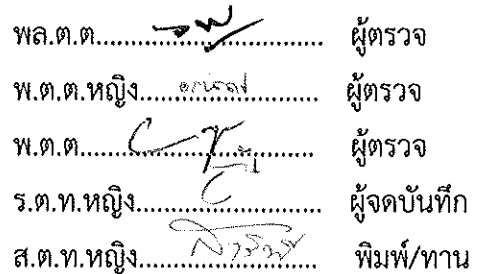 พล.ต.ต.............................. ผู้ตรวจ
พ.ต.ต.หญิง........................ ผู้ตรวจ
พ.ต.ต................................ ผู้ตรวจ
ร.ต.ท.หญิง......................... ผู้จดบันทึก
ส.ต.ท.หญิง......................... พิมพ์/ทาน